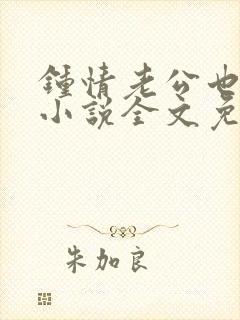 鍾情老公也
小說全文免
朱加良